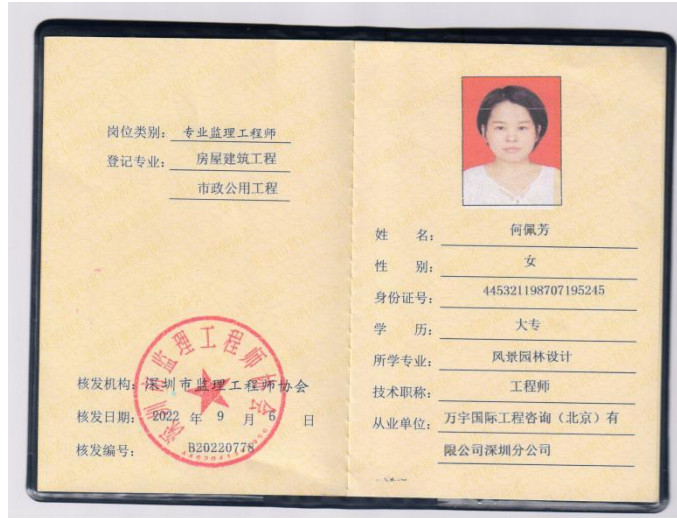 岗位类别：专业监理工程师
登记专业：房屋建筑工程
市政公用工程
核发机构：深圳市监理工程师协会
核发日期：2022年9月6日
核发编号：B20220778
姓名：何佩芳
性别：女
身份证号：445321198707195245
学历：大专
所学专业：风景园林设计
技术职称：工程师
从业单位：万宇国际工程咨询（北京）有
限公司深圳分公司
深圳市监理工程师协会